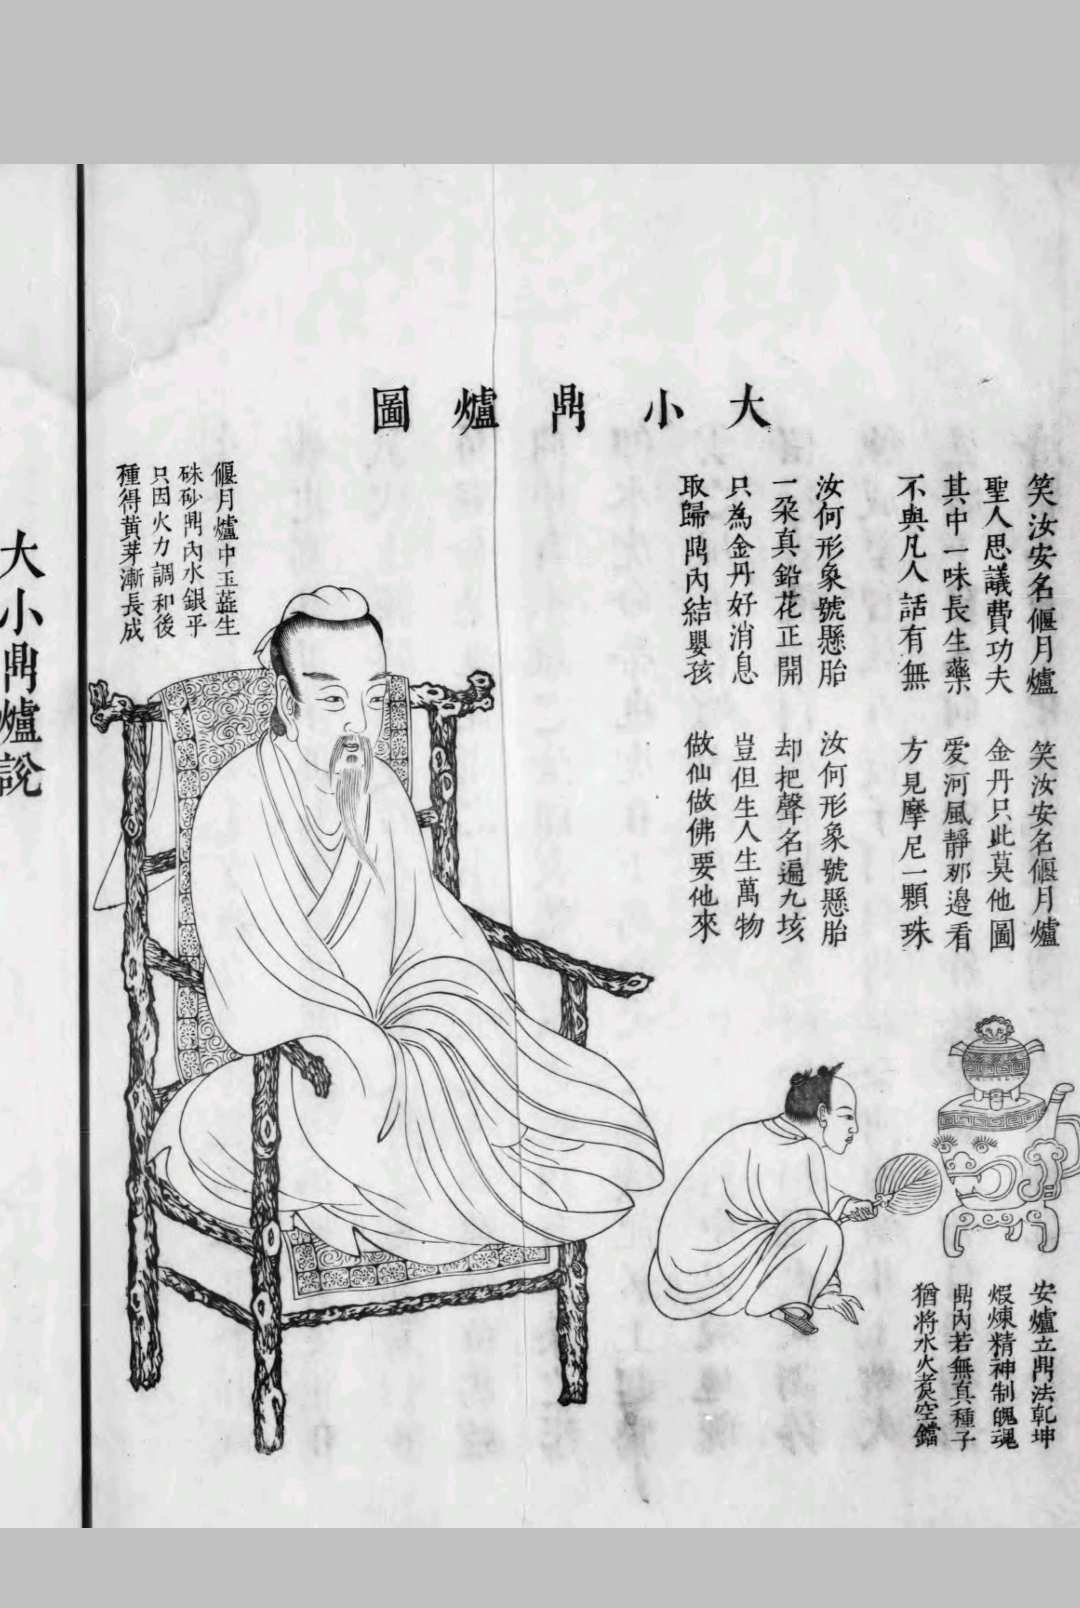 大小鼎爐圖
笑汝安名偃月爐
聖人思議費功夫
其中一味長生藥
不與凡人話有無
笑汝安名偃月爐
金丹只此莫他圖
愛河風靜那邊看
方見摩尼一顆珠
汝何形象號懸胎
一朶真鉛花正開
只為金丹好消息
取歸鼎內結嬰孩
汝何形象號懸胎
却把聲名遍九垓
豈但生人生萬物
做仙做佛要他來
偃月爐中玉蕋生
硃砂鼎內水銀平
只因火力調和後
種得黃芽漸長成
安爐立鼎法乾坤
煆煉精神制魄魂
鼎內若無真種子
猶將水火煑空鐺
大小鼎爐說